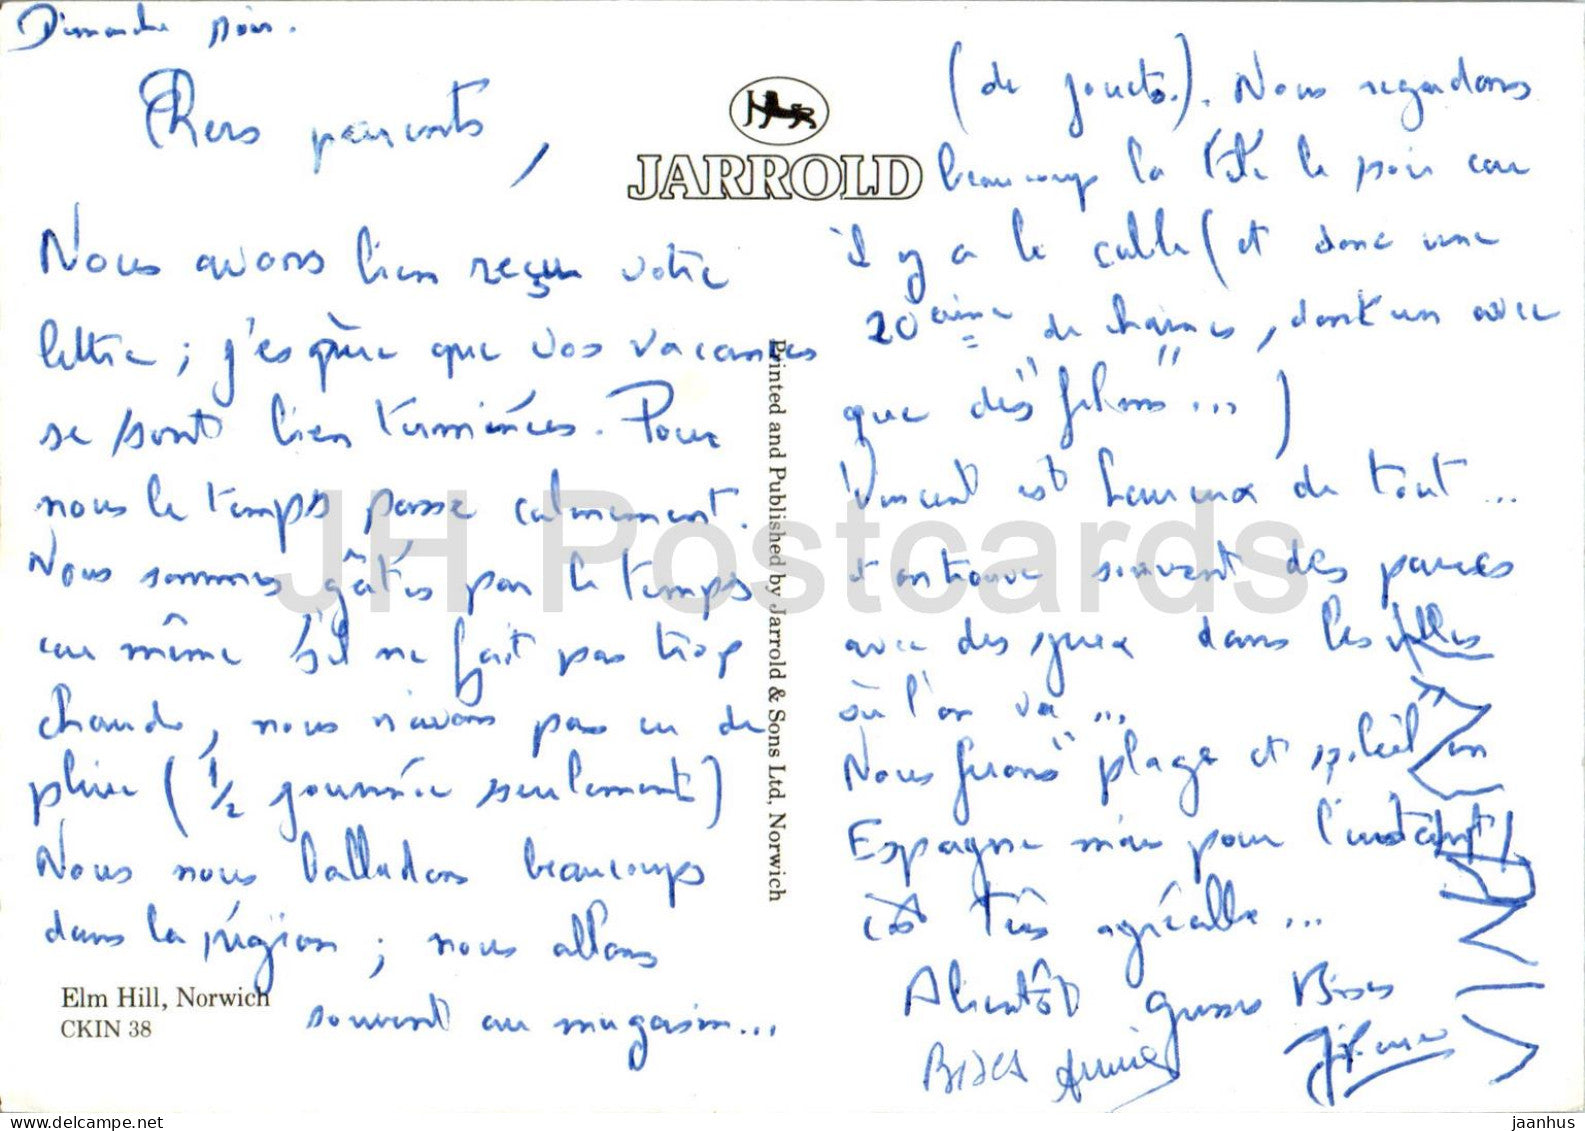 Dimanche soir.
Chers parents,
Nous avons bien reçu votre
lettre ; j'espère que vos vacances
se sont bien terminées. Pour
nous le temps passe calmement.
Nous sommes gâtés par le temps
car même s'il ne fait pas trop
chaud, nous n'avons pas eu de
pluie (1/2 journée seulement)
Nous nous balladons beaucoup
dans la région ; nous allons
souvent au magasin...
Elm Hill, Norwich
CKIN 38
JARROLD
Printed and Published by Jarrold & Sons Ltd, Norwich
(de jouets.). Nous regardons
beaucoup la Télé le soir car
il y a le cable (et donc une
20aine de chaines, dont un avec
que des "films"... )
Vincent est heureux de tout...
et on trouve souvent des parcs
avec des jeux dans les villes
où l'on va...
Nous ferons "plage et soleil" en
Espagne mais pour l'instant
c'est très agréable...
A bientôt grosses Bises
Bises Annie
VINCENT
JH Postcards
www.delcampe.net
jaanhus